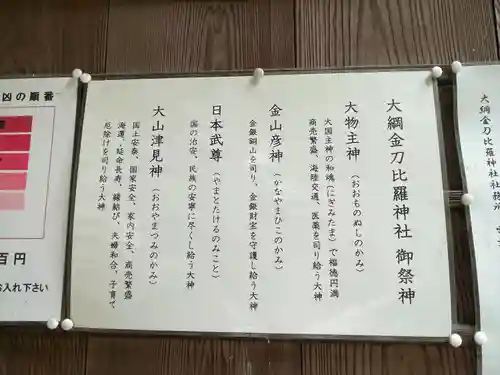 大綱金刀比羅神社
大綱金刀比羅神社 御祭神
大物主神 (おおものぬしのかみ)
大国主神の和魂(にぎみたま)で福徳円満
商売繁盛、海陸交通、医薬を司り給う大神
金山彦神 (かなやまひこのかみ)
金銀銅山を司り、金銀財宝を守護し給う大神
日本武尊 (やまとたけるのみこと)
国の治安、民族の安寧に尽くし給う大神
大山津見神 (おおやまつみのかみ)
国土安泰、国家安全、家内安全、商売繁盛
海運・延命長寿、縁結び、夫婦和合、子育て
厄除けを司り給う大神
凶の順番
百円
お入れ下さい